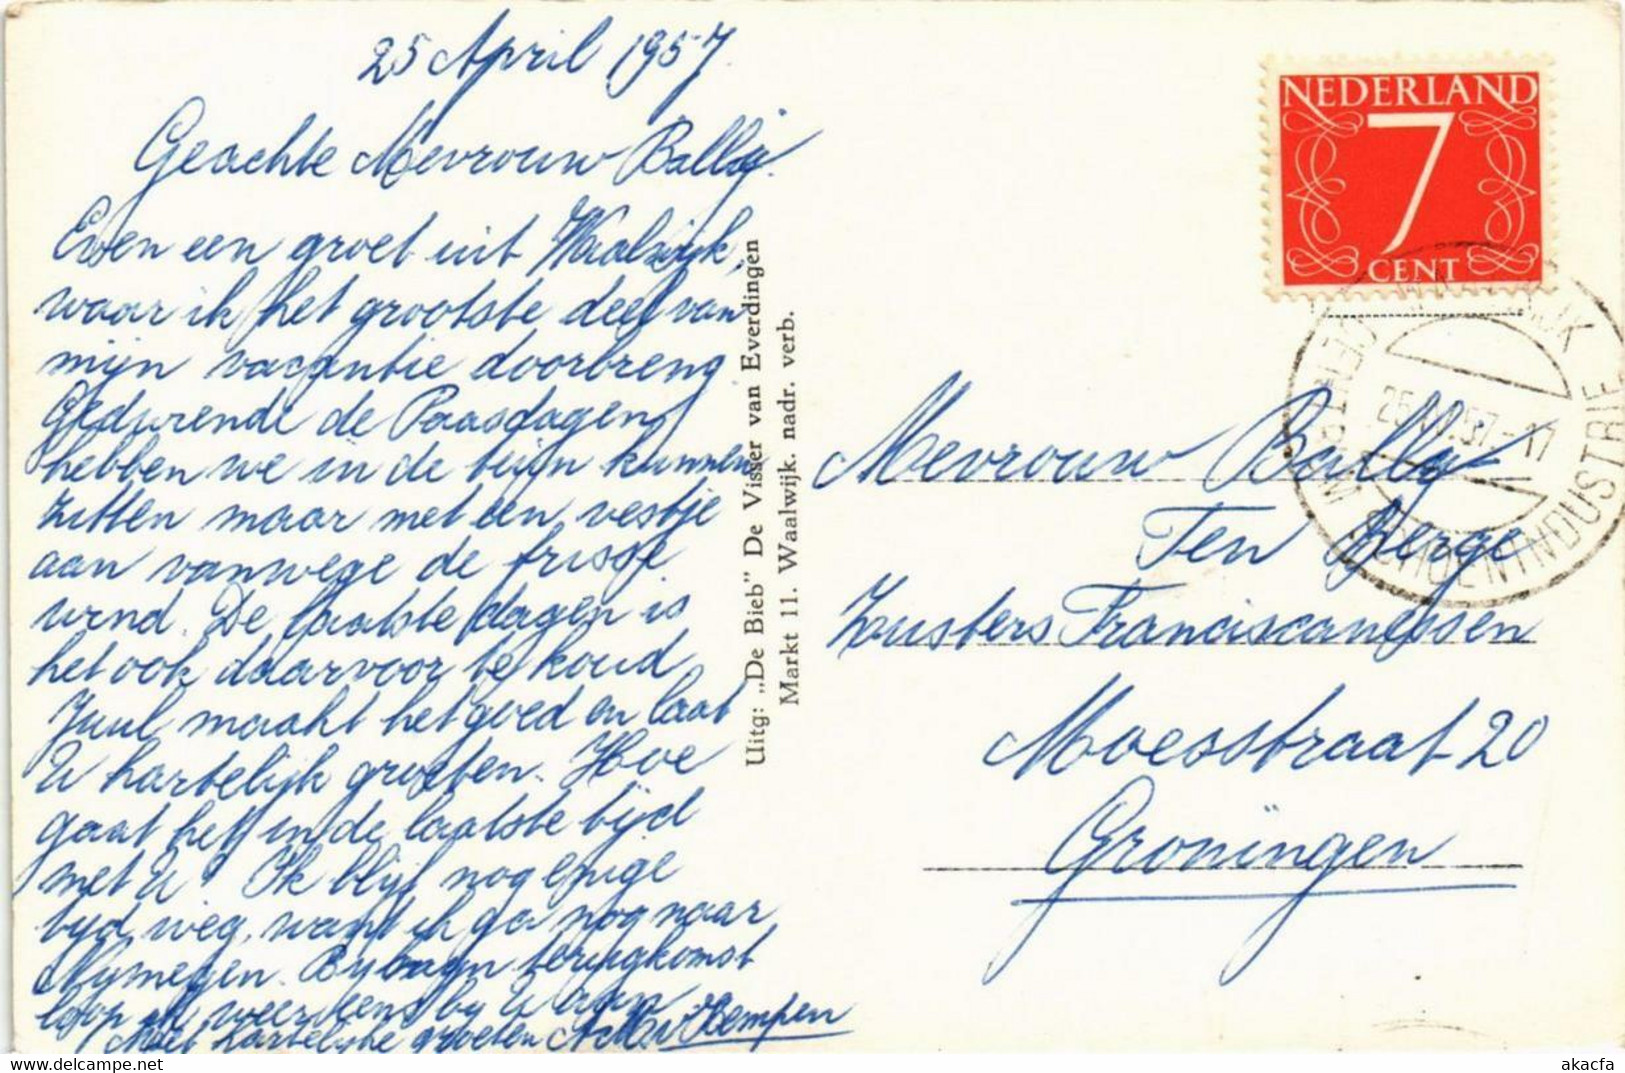 25 April 1957
Geachte Mevrouw Ballij.
Even een groet uit Waalwijk,
waar ik het grootste deel van
mijn vacantie doorbreng
Gedurende de Paasdagen
hebben we in de tuin kunnen
zitten maar met een vestje
aan vanwege de frisse
wind. De laatste dagen is
het ook daarvoor te koud
Juul maakt het goed en laat
U hartelijk groeten. Hoe
gaat het in de laatste tijd
met U? Ik blijf nog enige
tijd weg, want ik ga nog naar
Nijmegen. Bij mijn terugkomst
loop ik weer eens bij U aan
Met hartelijke groeten v Kempen
Uitg: „De Bieb” De Visser van Everdingen
Markt 11. Waalwijk. nadr. verb.
NEDERLAND
7
CENT
WAALWIJK
25.IV.57-17
CENTRUM
SCHOENINDUSTRIE
Mevrouw Ballij
Ten Berge
Zusters Franciscanessen
Moesstraat 20
Groningen
akacfa